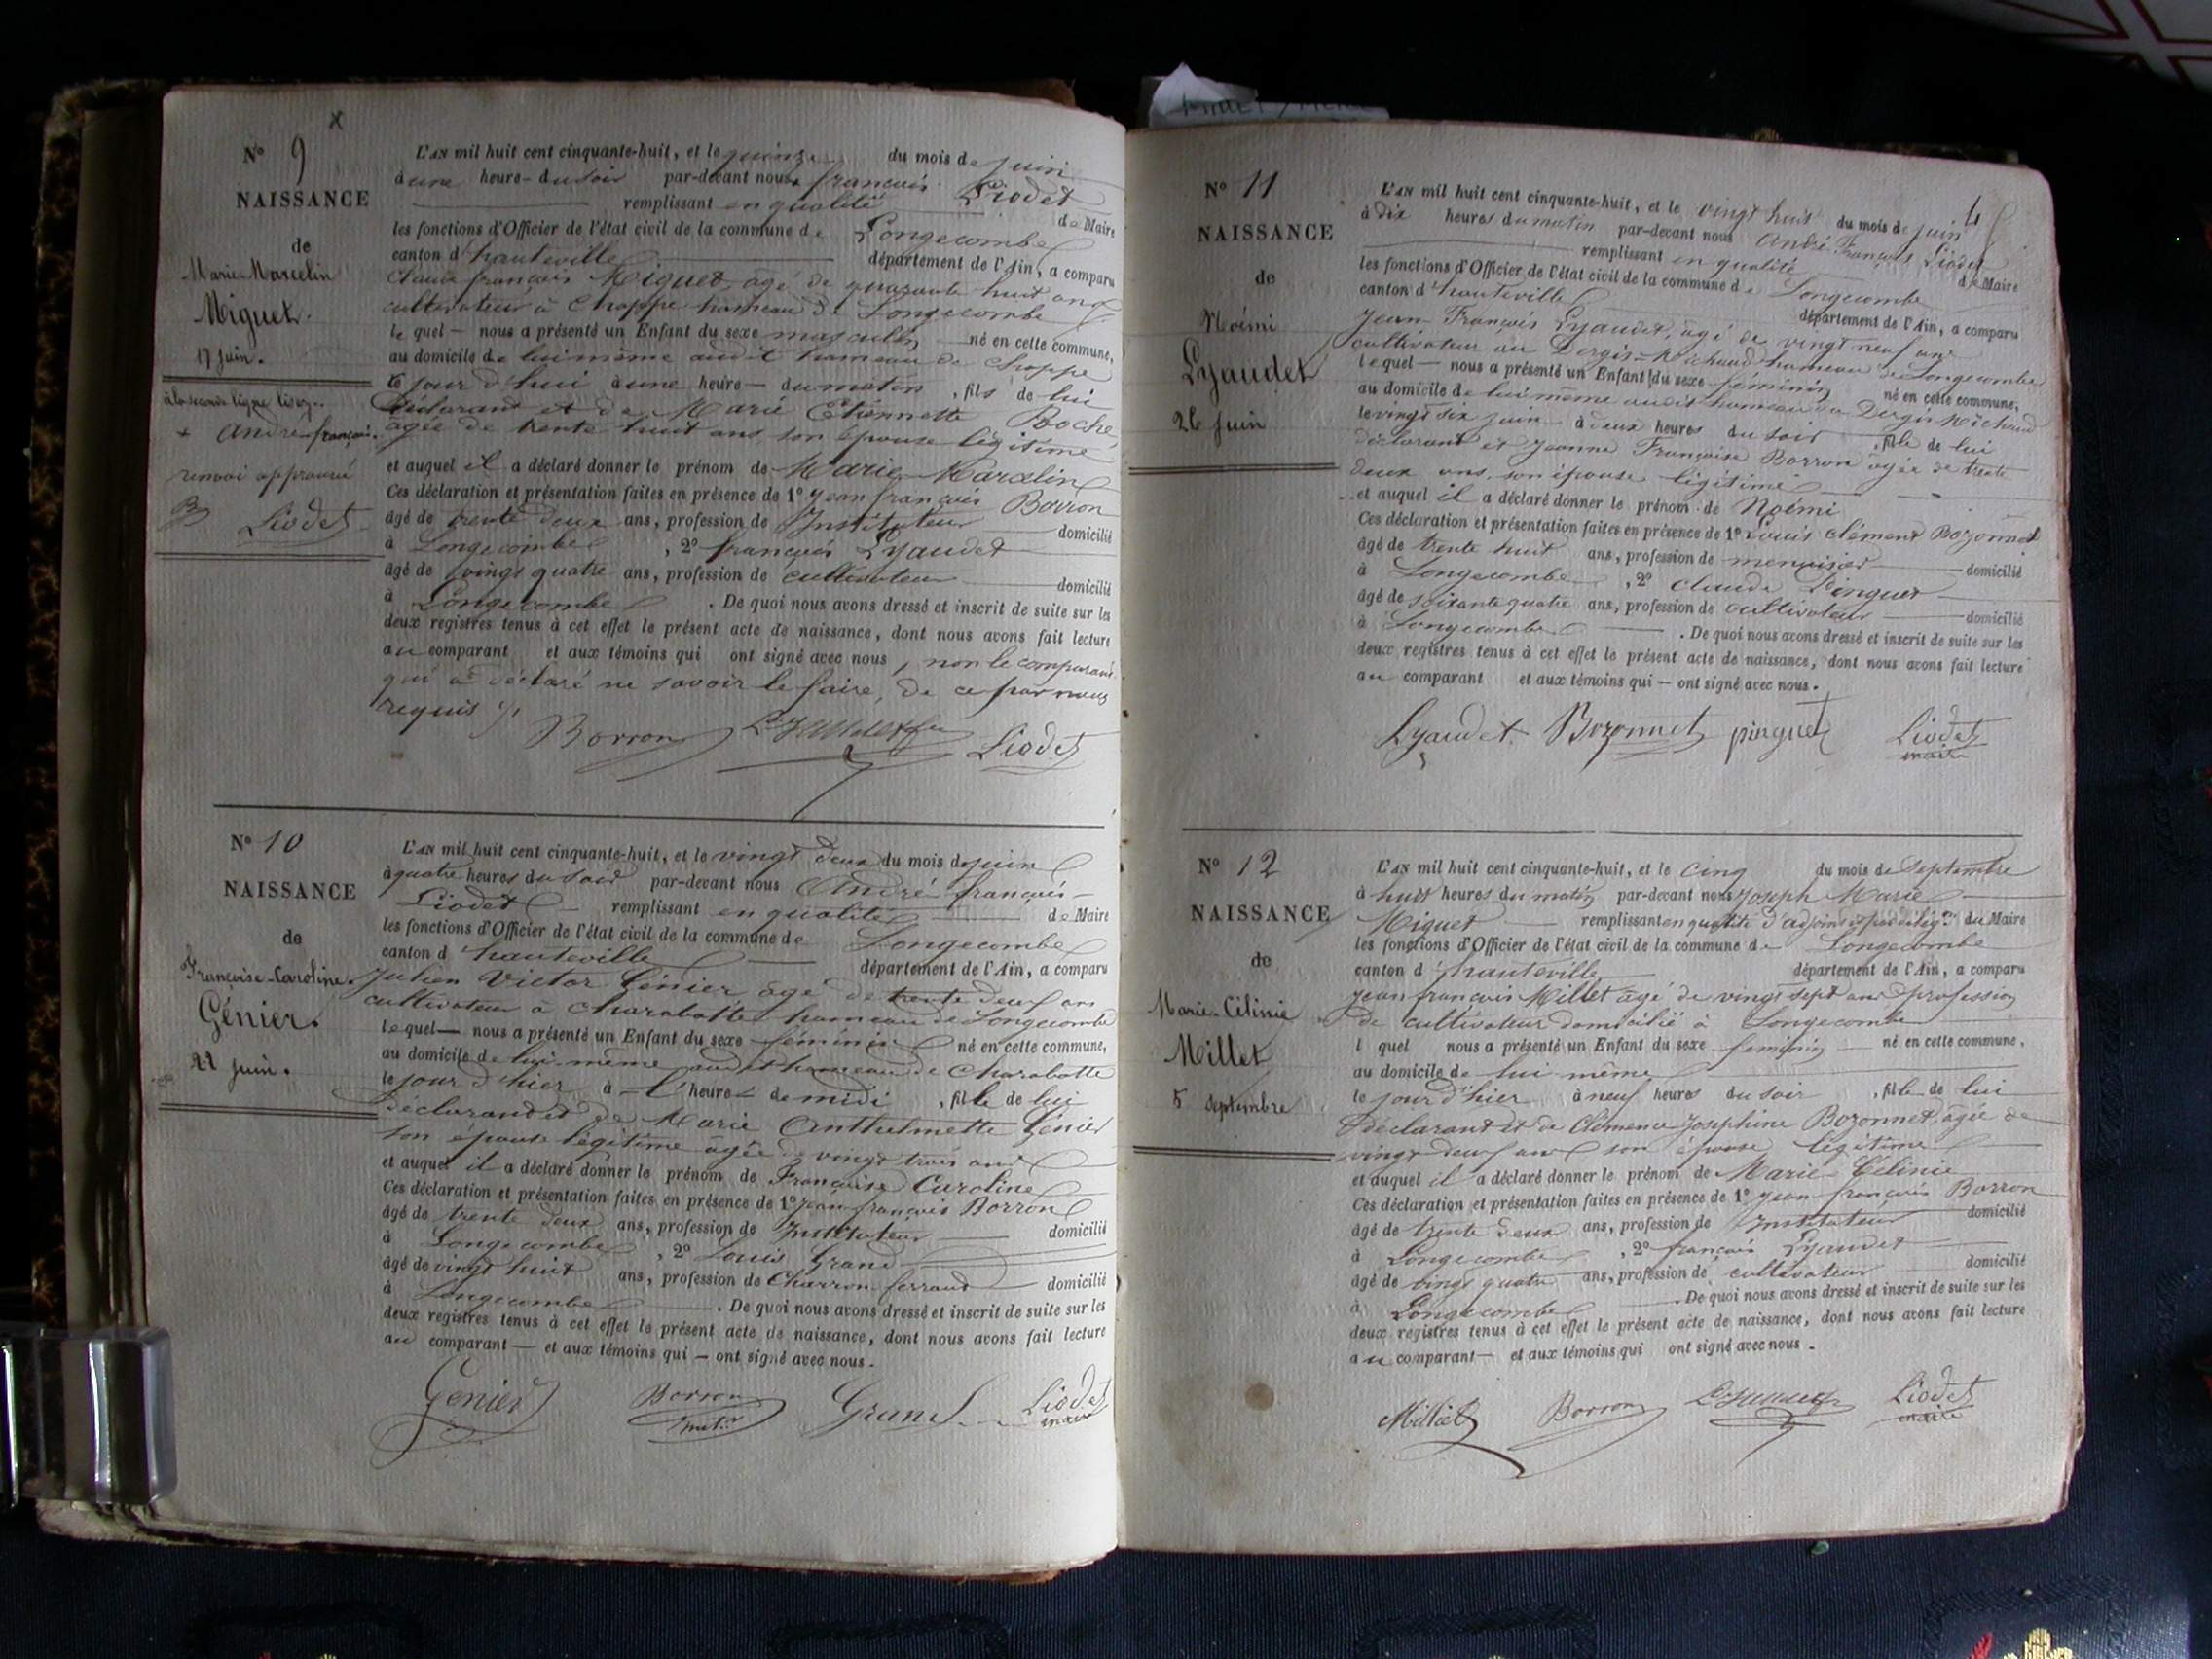 x
N° 9
NAISSANCE
de
Marie-Marcelin
Miguet.
17 juin.
à la seconde ligne lisez..
+ André-françois.
renvoi approuvé
Liodet
L'AN mil huit cent cinquante-huit, et le quinze du mois de juin
à une heure du soir par-devant nous + françois Liodet
remplissant en qualité de Maire
les fonctions d'Officier de l'état civil de la commune de Longecombe
canton d'hauteville département de l'Ain, a comparu
Claude françois Miguet, âgé de quarante huit ans
cultivateur à Chappe hameau de Longecombe
le quel — nous a présenté un Enfant du sexe masculin né en cette commune,
au domicile de lui même audit hameau de Chappe
ce jour d'hui à une heure — du matin, fils de lui
déclarant et de Marie Etiennette Roche,
agée de trente huit ans, son épouse légitime
et auquel il a déclaré donner le prénom de Marie Marcelin
Ces déclaration et présentation faites en présence de 1° Jean françois Borron
âgé de trente deux ans, profession de Instituteur domicilié
à Longecombe, 2° françois Lyaudet
âgé de vingt quatre ans, profession de cultivateur domicilié
à Longecombe. De quoi nous avons dressé et inscrit de suite sur les
deux registres tenus à cet effet le présent acte de naissance, dont nous avons fait lecture
au comparant et aux témoins qui ont signé avec nous, non le comparant
qui a déclaré ne savoir le faire, de ce par nous
requis
Borron Lyaudet Liodet
N° 10
NAISSANCE
de
Françoise-Caroline
Génier.
21 juin.
L'AN mil huit cent cinquante-huit, et le vingt deux du mois de juin
à quatre heures du soir par-devant nous André françois
Liodet remplissant en qualité de Maire
les fonctions d'Officier de l'état civil de la commune de Longecombe
canton d'hauteville département de l'Ain, a comparu
Julien Victor Génier âgé de trente deux ans
cultivateur à Charabotte hameau de Longecombe
lequel — nous a présenté un Enfant du sexe féminin né en cette commune,
au domicile de lui-même audit hameau de Charabotte
le jour d'hier à l'heure de midi, fille de lui
déclarant et de Marie Anthelmette Génier
son épouse légitime âgée de vingt trois ans
et auquel il a déclaré donner le prénom de Françoise Caroline
Ces déclaration et présentation faites en présence de 1° Jean françois Borron
âgé de trente deux ans, profession de Instituteur domicilié
à Longecombe, 2° Louis Grand
âgé de vingt huit ans, profession de Charron ferrand domicilié
à Longecombe. De quoi nous avons dressé et inscrit de suite sur les
deux registres tenus à cet effet le présent acte de naissance, dont nous avons fait lecture
au comparant — et aux témoins qui — ont signé avec nous.
Génier Borron Grand Liodet
inst.r maire
N° 11
NAISSANCE
de
Noémi
Lyaudet
26 juin
4
L'AN mil huit cent cinquante-huit, et le vingt huit du mois de juin
à dix heures du matin par-devant nous André François Liodet
remplissant en qualité de Maire
les fonctions d'Officier de l'état civil de la commune de Longecombe
canton d'hauteville département de l'Ain, a comparu
Jean François Lyaudet, âgé de vingt neuf ans
cultivateur au Dergis-Michaud hameau de Longecombe
le quel — nous a présenté un Enfant du sexe féminin né en cette commune,
au domicile de lui même audit hameau du Dergis Michaud
le vingt six juin à deux heures du soir, fille de lui
déclarant et Jeanne Françoise Borron âgée de trente
deux ans, son épouse légitime
et auquel il a déclaré donner le prénom de Noémi
Ces déclaration et présentation faites en présence de 1° Louis Clément Bozonnet
âgé de trente huit ans, profession de menuisier domicilié
à Longecombe, 2° Claude Pinguet
âgé de soixante quatre ans, profession de cultivateur domicilié
à Longecombe. De quoi nous avons dressé et inscrit de suite sur les
deux registres tenus à cet effet le présent acte de naissance, dont nous avons fait lecture
au comparant et aux témoins qui — ont signé avec nous.
Lyaudet Bozonnet pinguet Liodet
maire
N° 12
NAISSANCE
de
Marie-Célinie
Millet
5 septembre
L'AN mil huit cent cinquante-huit, et le cinq du mois de Septembre
à huit heures du matin par-devant nous Joseph Marie
Miguet remplissant en qualité d'adjoint et par délég.on du Maire
les fonctions d'Officier de l'état civil de la commune de Longecombe
canton d'hauteville département de l'Ain, a comparu
Jean françois Millet âgé de vingt sept ans profession
de cultivateur domicilié à Longecombe
l quel nous a présenté un Enfant du sexe feminin né en cette commune,
au domicile de lui même
le jour d'hier à neuf heures du soir, fille de lui
déclarant et de Clémence Josephine Bozonnet, agée de
vingt deux ans son épouse légitime
et auquel il a déclaré donner le prénom de Marie-Célinie
Ces déclaration et présentation faites en présence de 1° Jean françois Borron
âgé de trente deux ans, profession de Instituteur domicilié
à Longecombe, 2° françois Lyaudet
âgé de vingt quatre ans, profession de cultivateur domicilié
à Longecombe. De quoi nous avons dressé et inscrit de suite sur les
deux registres tenus à cet effet le présent acte de naissance, dont nous avons fait lecture
au comparant — et aux témoins qui ont signé avec nous.
Millet Borron Lyaudet Liodet
maire